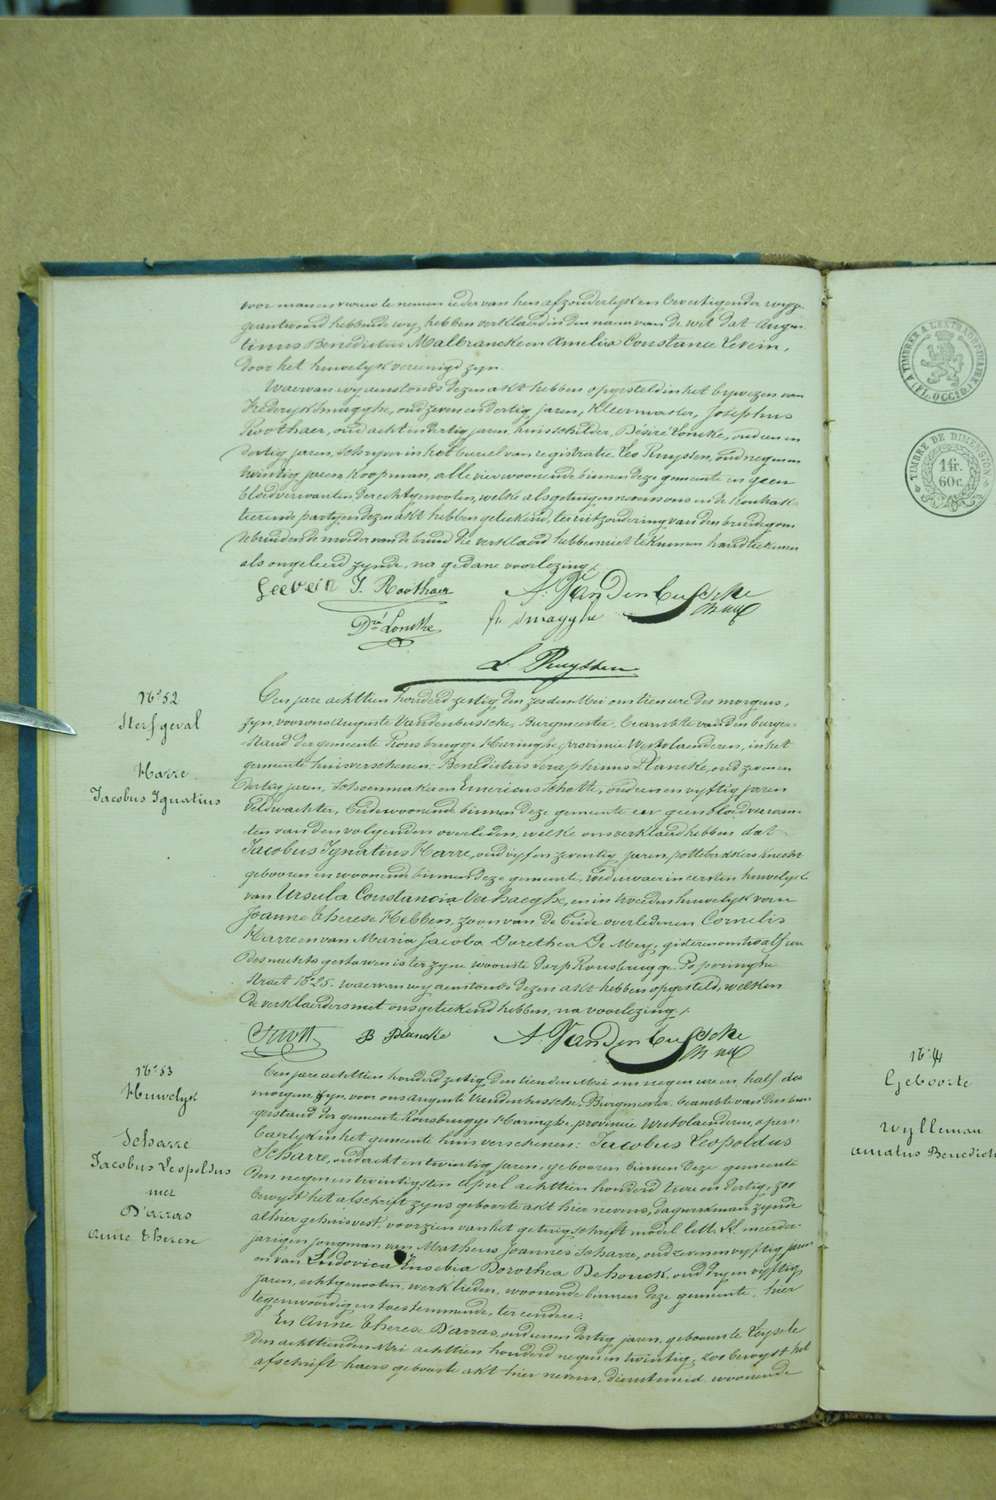 voor man en vrouw te nemen ieder van hen afzonderlyk en bevestigender wyze
geantwoord hebbende wy hebben verklaerd in den naem van de wet dat Augus-
tinus Benedictus Malbrancke en Amelia Constance Levein,
door het huwelyk vereenigd zyn.
Waervan wy aenstonds dezen akt hebben opgesteld in het bywezen van
Frederyk Smagghe, oud zeven en dertig jaren, Kleermaker, Josephus
Roothaer, oud acht en dertig jaren, huisschilder, Désiré Loncke, oud een en
dertig jaren, schryver in het bureel van registratie Leo Ruyssen, oud negen en
twintig jaren koopman, alle vier woonende binnen deze gemeente en geen
bloedverwanten der echtgenooten, welke als getuigen nevens ons en de kontrak-
teerende partyen dezen akt hebben geteekend, ter uitzondering van den bruidegom
de bruid en de moeder van de bruid die verklaerd hebben niet te kunnen handteekenen
als ongeleerd zynde, na gedane voorlezing.
Leevein J. Roothaer A. VandenBussche
Dré Loncke fr. Smagghe
L. Ruyssen
No 52
Sterfgeval
Harre
Jacobus Ignatius
Den jare achttien honderd zestig den zesden Mei om tien ure des morgens,
zyn voor ons Auguste Vandenbussche, Burgmeester, beambte van den burger-
stand der gemeente Rousbrugge Haringhe, provincie Westvlaenderen, in het
gemeente huis verschenen: Benedictus Seraphinus Plancke, oud zeven en
dertig jaren, Schoenmaker en Emericus Schotte, oud een en vyftig jaren
Veldwachter, beide woonende binnen deze gemeente en geen bloedverwan-
ten van den volgenden overleden, welke ons verklaerd hebben dat
Jacobus Ignatius Harre, oud vyf en zeventig jaren, pottebakkers knecht
gebooren en woonende binnen deze gemeente, weduwaer in eersten huwelyk
van Ursula Constancia Verhaeghe, en in tweeden huwelyk van
Joanne Therese Hebben, zoon van de beide overledenen Cornelis
Harre en van Maria Jacoba Dorothea De Mey, gisteren om twaelf ure
des nachts gestorven is ter zyne woonste dorp Rousbrugge Poperinghe
straet No 25. waervan wy aenstonds dezen akt hebben opgesteld, welken
de verklaerders met ons geteekend hebben, na voorlezing.
B Plancke A. VandenBussche
No 53
Huwelyk
Scharre
Jacobus Leopoldus
met
D'arras
Anne Therese
Den jare achttien honderd zestig, den tienden Mei om negen ure en half des
morgens, zyn voor ons Auguste Vandenbussche, Burgmeester, beambte van den bur-
gerstand der gemeente Rousbrugge Haringhe, provincie Westvlaenderen, open-
baerlyk in het gemeente huis verschenen: Jacobus Leopoldus
Scharre, oud acht en twintig jaren, gebooren binnen deze gemeente
den negen en twintigsten April achttien honderd twee en dertig, zoo
bewyst het afschrift zyns geboorte akt hier nevens, dagwerkman zynde
alhier gehuisvest, voorzien van het getuigschrift model lett. L. meerder-
jarigen jongman van Matheus Joannes Scharre, oud zeven en vyftig jaren
en van Ludovica Eusebia Dorothea Dehouck, oud dry en vyftig
jaren, echtgenooten, werklieden, woonende binnen deze gemeente, hier
tegenwoordig en toestemmende, ter eendere;
En Anne Therese D'arras, oud een en dertig jaren, gebooren te Leysele
den achttienden Mei achttien honderd negen en twintig, zoo bewyst het
afschrift haers geboorte akt hier nevens, dienstmeid, woonende
A TIMBRER A L'EXTRAORDINAIRE
(FL. OCCID.)
TIMBRE DE DIMENSION
1 fr.
60 c.
Geboorte
Wylleman
Amatus Benedict